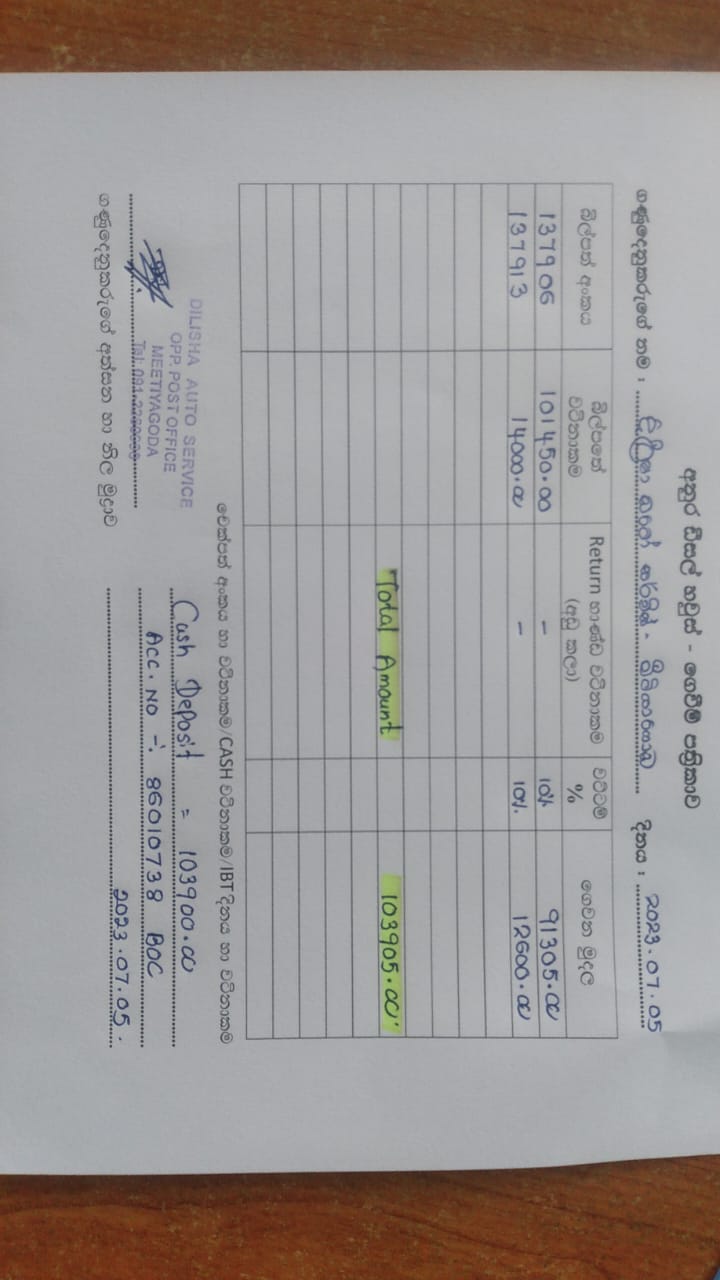 අනුර ඩීසල් හවුස් - ගෙවීම් පත්‍රිකාව
ගණුදෙනුකරුගේ නම : දිනය : 2023.07.05
බිල්පත් අංකය බිල්පතේ වටිනාකම Return භාණ්ඩ වටිනාකම (අඩු කලා) වට්ටම් % ගෙවන මුදල
137906 101450.00 - 10% 91305.00
137913 14000.00 - 10%. 12600.00
Total Amount 103905.00
චෙක්පත් අංකය හා වටිනාකම/CASH වටිනාකම/IBT දිනය හා වටිනාකම
DILISHA AUTO SERVICE
OPP. POST OFFICE
MEETIYAGODA
Tel: 091
Cash Deposit = 103900.00
Acc. No -: 86010738 BOC
2023.07.05.
ගණුදෙනුකරුගේ අත්සන හා නිල මුද්‍රාව